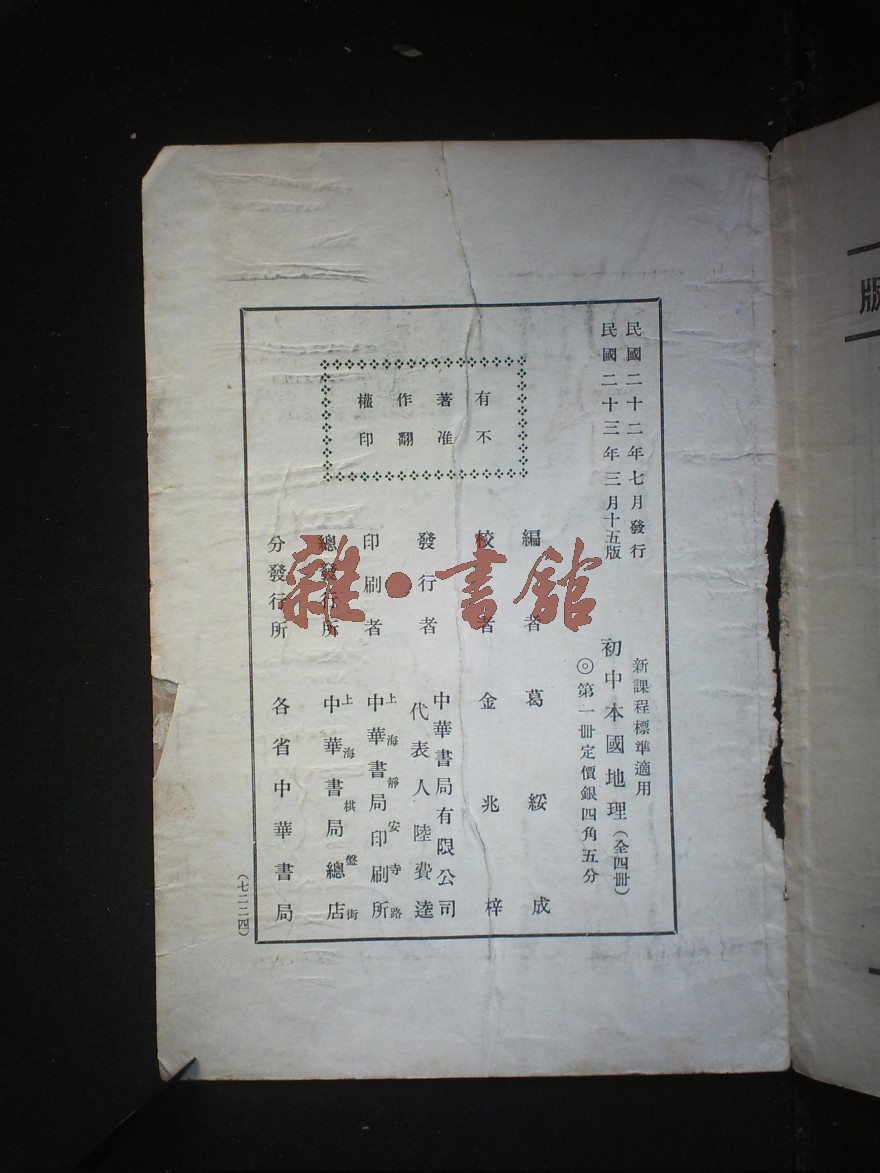 版
民國二十二年七月發行
民國二十三年三月十五版
新課程標準適用
初中本國地理（全四冊）
◎第一冊定價銀四角五分
有著作權
不准翻印
編者 葛綏成
校者 金兆梓
發行者 中華書局有限公司
代表人陸費逵
印刷者 上海靜安寺路
中華書局印刷所
總發行所 上海棋盤街
中華書局總店
分發行所 各省中華書局
（七二二四）
雜·書館